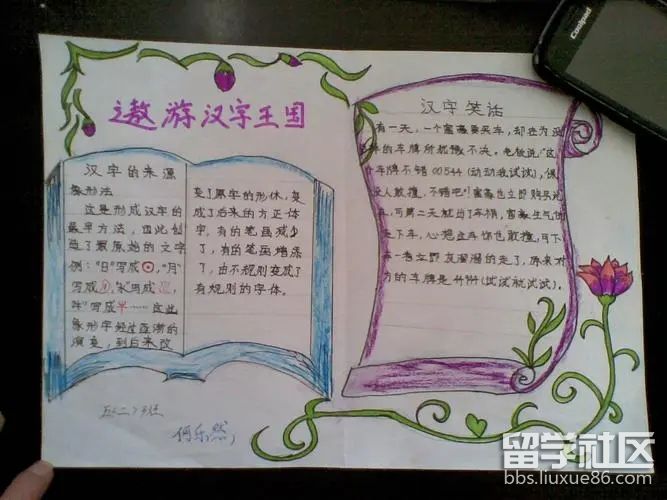 遨游汉字王国
汉字的来源
象形法
这是形成汉字的
最早方法，由此创
造了最原始的文字
例："日"写成，"月"
写成，"水"写成，
写成……这些
象形字经过逐渐的
演变，到后来改
变了原字的形体，变
成了后来的方正体
字，有的笔画减少
了，有的笔画增添
了，由不规则变成了
有规则的字体。
五(二)班
何乐然
汉字笑话
有一天，一个富豪要买车，却在为
的车牌所犹豫不决。老板说："这
车牌不错00544(动动我试试)，保
没人敢撞。不错吧！"富豪也立即购买
车，可第二天就出了车祸，富豪生气
走下车，心想这车你也敢撞，可下
车一看立即灰溜溜的走了，原来对
方的车牌是4444(试试就试试)。
Coolpad
留学社区
bbs.liuxue86.com